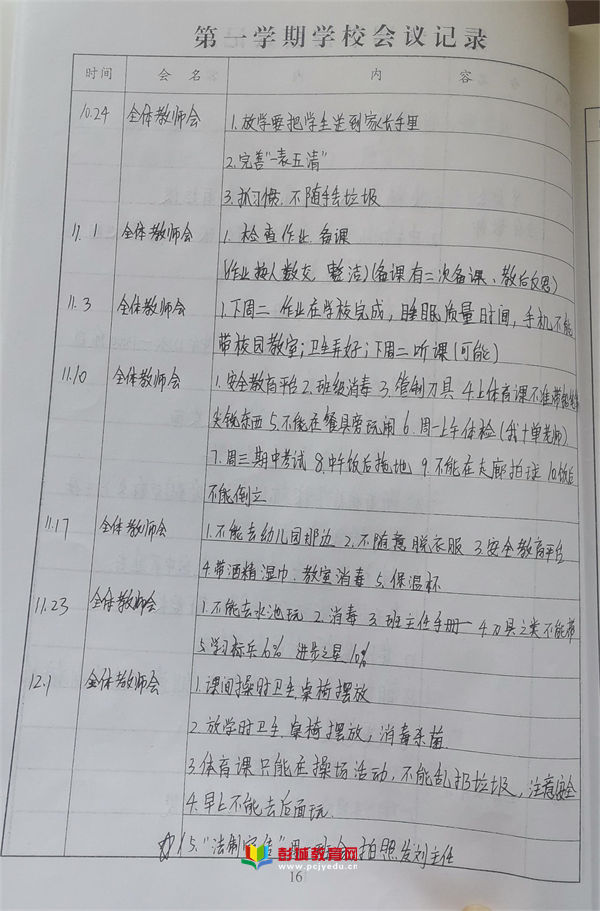 第一学期学校会议记录
时间 会名 内容
10.24 全体教师会 1.放学要把学生送到家长手里
2.完善"一表五清"
3.抓习惯,不随手丢垃圾
11.1 全体教师会 1.检查作业.备课
(作业按人数交 整洁)(备课有二次备课、教后反思)
11.3 全体教师会 1.下周二 作业在学校完成,睡眠质量时间,手机不能
带校园教室;卫生弄好;下周二听课(可能)
11.10 全体教师会 1.安全教育平台 2.班级消毒 3.管制刀具 4.上体育课不准带
尖锐东西 5.不能在餐具旁玩闹 6.周一上午体检(我+单老师)
7.周三期中考试 8.中午饭后拖地 9.不能在走廊拍球 10.饭后
不能倒立
11.17 全体教师会 1.不能去幼儿园那边 2.不随意脱衣服 3.安全教育平台
4.带酒精湿巾.教室消毒 5.保温杯
11.23 全体教师会 1.不能去水池玩 2.消毒 3.班主任手册 4.刀具之类不能带
5.学习标兵6% 进步之星10%
12.1 全体教师会 1.课间操时卫生.桌椅摆放
2.放学时卫生.桌椅摆放,消毒杀菌.
3.体育课只能在操场活动,不能乱扔垃圾,注意安全
4.早上不能去后面玩.
5."法制宣传" 拍照发刘主任
彭城教育网
www.pcjyedu.cn
16